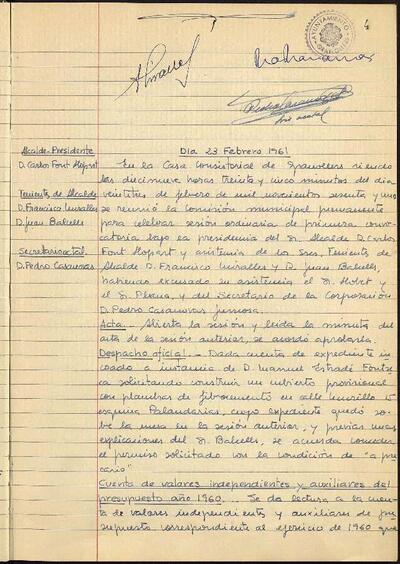 4
AYUNTAMIENTO
GRANOLLERS
Día 23 Febrero 1961
Alcalde-Presidente
D. Carlos Font Llopart
Tenientes de Alcalde
D. Francisco Miralles
D. Juan Balcells
Secretario actal
D. Pedro Casanovas
En la Casa Consistorial de Granollers siendo
las diecinueve horas treinta y cinco minutos del día
veintitres de febrero de mil novecientos sesenta y uno
se reunió la Comisión municipal permanente
para celebrar sesión ordinaria de primera convo-
catoria bajo la presidencia del Sr. Alcalde D. Carlos
Font Llopart y asistencia de los Sres. Tenientes de
Alcalde D. Francisco Miralles y D. Juan Balcells,
habiendo excusado su asistencia el Sr. Llobet y
el Sr. Plana, y del Secretario de la Corporación
D. Pedro Casanovas
Acta.- Abierta la sesión y leida la minuta del
acta de la sesión anterior, se acordó aprobarla.
Despacho oficial.- Dada cuenta de expediente in-
coado a instancia de D. Manuel Estradé
solicitando construir un cubierto provisional
con planchas de fibrocemento en calle Murillo 15
esquina Palaudarias, cuyo expediente quedó so-
bre la mesa en la sesión anterior, y previas unas
explicaciones del Sr. Balcells, se acuerda conceder
el permiso solicitado con la condición de "a pre-
cario"
Cuenta de valores independientes y auxiliares del
presupuesto año 1960.- Se da lectura a la cuen-
ta de valores independientes y auxiliares de pre-
supuesto correspondiente al ejercicio de 1960 que